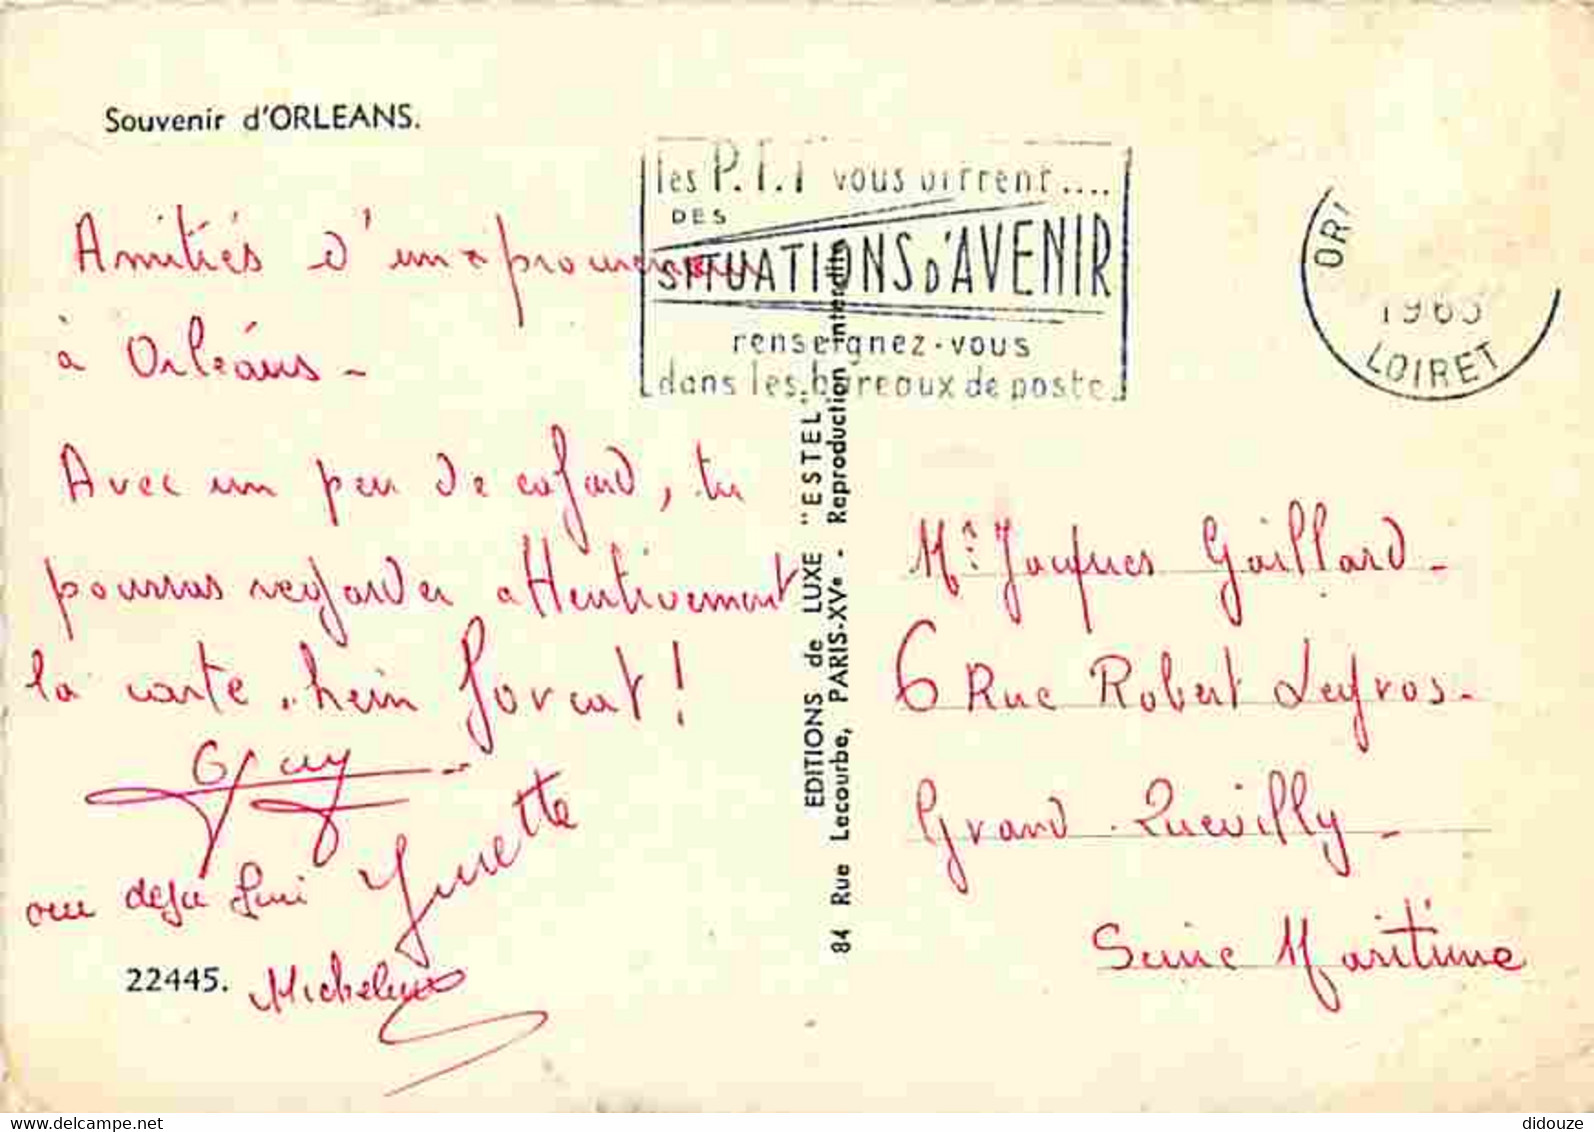 Souvenir d'ORLEANS.
les P.T.T vous offrent....
DES
SITUATIONS D'AVENIR
renseignez-vous
dans les bureaux de poste
OR
196
LOIRET
Amitiés d'un
à Orléans -
Avec un peu de cafard, tu
pourras regarder attentivement
la carte, hein forcat!
Guy
Ginette
deja fini
Micheline
22445.
EDITIONS de LUXE "ESTEL"
84 Rue Lecourbe, PARIS-XVe - Reproduction interdite
Mr. Jacques Gaillard -
6 Rue Robert Legros -
Grand Quevilly -
Seine Maritime
www.delcampe.net
didouze